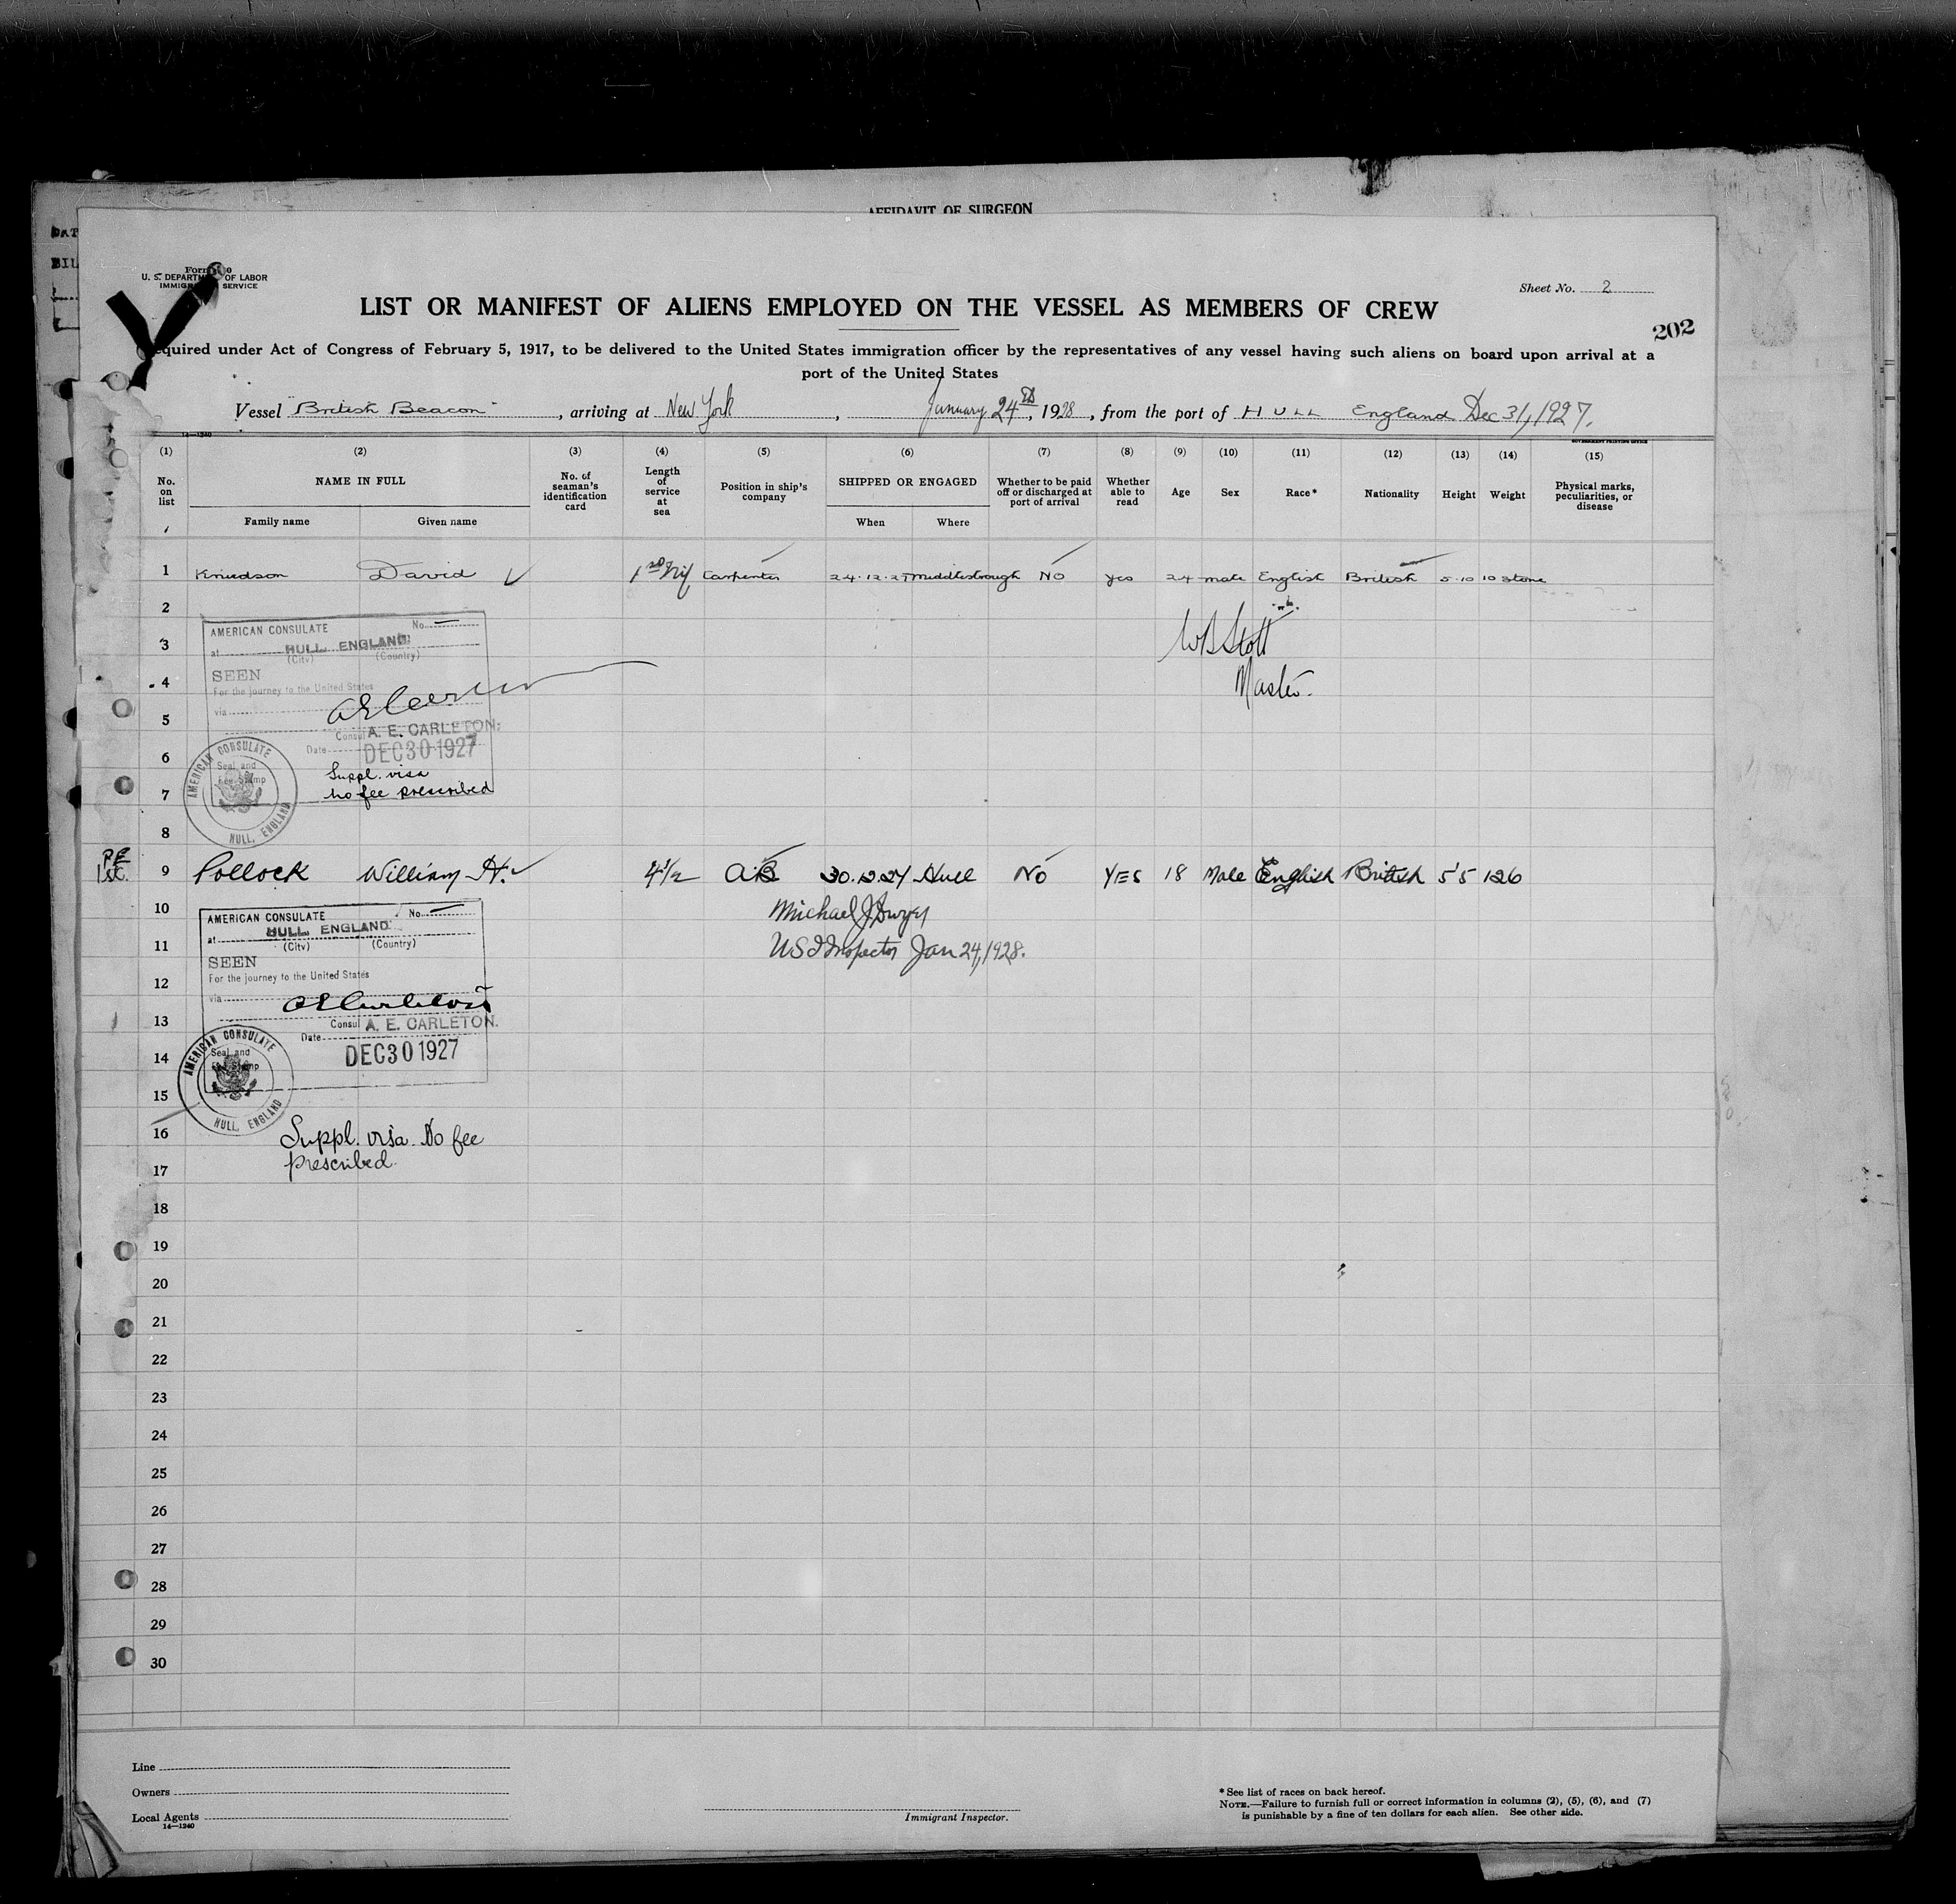 AFFIDAVIT OF SURGEON
U. S. DEPARTMENT OF LABOR
IMMIGRATION SERVICE
Sheet No. 2
LIST OR MANIFEST OF ALIENS EMPLOYED ON THE VESSEL AS MEMBERS OF CREW
202
equired under Act of Congress of February 5, 1917, to be delivered to the United States immigration officer by the representatives of any vessel having such aliens on board upon arrival at a
port of the United States
Vessel "British Beacon", arriving at New York, January 24th, 1928, from the port of HULL England Dec 31, 1927.
14—1240
GOVERNMENT PRINTING OFFICE
(1) (2) (3) (4) (5) (6) (7) (8) (9) (10) (11) (12) (13) (14) (15)
No. on list
NAME IN FULL
Family name Given name
No. of seaman's identification card
Length of service at sea
Position in ship's company
SHIPPED OR ENGAGED
When Where
Whether to be paid off or discharged at port of arrival
Whether able to read
Age Sex Race* Nationality Height Weight
Physical marks, peculiarities, or disease
1 Knudson David Carpenter 24.12.27 Middlesbrough NO yes 24 male English British 5.10 10 stone
2
AMERICAN CONSULATE No.
3 at HULL, ENGLAND
(City) (Country)
W B Stott
SEEN
4 For the journey to the United States
Master.
via
5
Consul A. E. CARLETON.
Date DEC 30 1927
6 Seal and Fee Stamp
Suppl. visa
7 no fee prescribed
AMERICAN CONSULATE HULL, ENGLAND
8
9 Pollock William H. 4½ A.B 30.12.27 Hull No YES 18 Male English British 5'5 126
10 AMERICAN CONSULATE No.
Michael J Dwyer
at HULL, ENGLAND
11 (City) (Country)
US I Inspector Jan 24, 1928.
SEEN
For the journey to the United States
12 via
A E Carleton
13 Consul A. E. CARLETON.
Date DEC 30 1927
14 Seal and Fee Stamp
AMERICAN CONSULATE HULL, ENGLAND
15
16 Suppl. visa. No fee
17 prescribed.
18
19
20
21
22
23
24
25
26
27
28
29
30
Line
Owners
Local Agents
14—1240
Immigrant Inspector.
* See list of races on back hereof.
NOTE.—Failure to furnish full or correct information in columns (2), (5), (6), and (7)
is punishable by a fine of ten dollars for each alien. See other side.